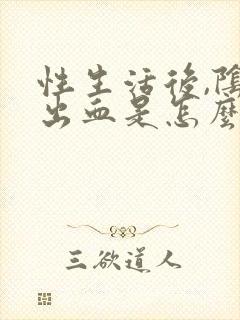 性生活後,陰
出血是怎麼
三欲道人